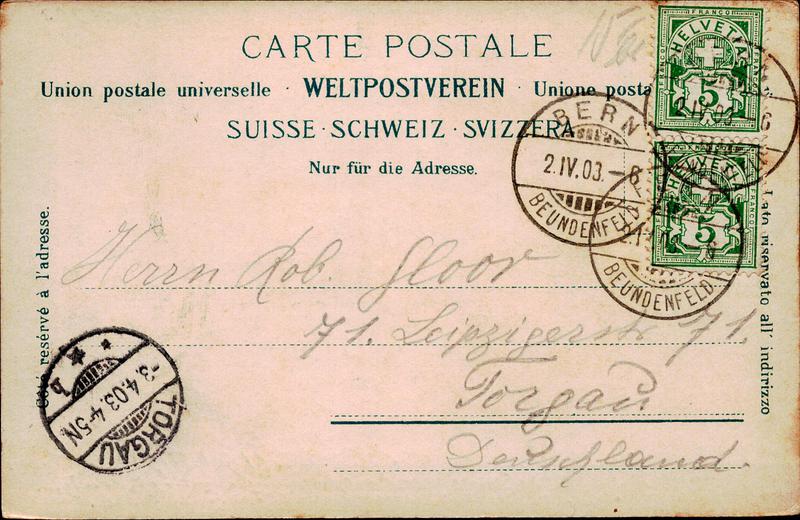 CARTE POSTALE
Union postale universelle · WELTPOSTVEREIN · Unione posta
SUISSE · SCHWEIZ · SVIZZERA
Nur für die Adresse.
Côté resérvé à l'adresse.
Lato riservato all' indirizzo
FRANCO
HELVETIA
5
2.IV.03.-6
HELVETIA
FRANCO
5
BERN
2.IV.03.-6
BEUNDENFELD
BEUNDENFELD
Herrn Rob. Gloor
71. Leipzigerstr 71.
Torgau
Deutschland.
TORGAU
-3.4.03.4-5N